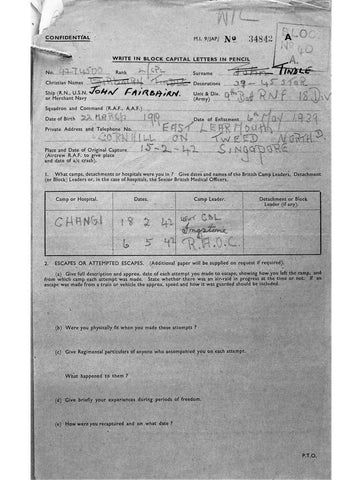 N/C
CONFIDENTIAL
M.I. 9/JAP/ No 34842
A
LOC
No 40
A.
WRITE IN BLOCK CAPITAL LETTERS IN PENCIL
No. 4274500 Rank L/CPL Surname TINDLE
Christian Names Decorations 39-45 STAR
Ship (R.N., U.S.N. or Merchant Navy) JOHN FAIRBAIRN. Unit & Div. (Army) 9th Bd RNF 18 DIV
Squadron and Command (R.A.F., A.A.F.)
Date of Birth 22 MARCH 1919 Date of Enlistment 6th MAY 1939
Private Address and Telephone No. EAST LEARMOUTH
CORNHILL ON TWEED NORTHD.
Place and Date of Original Capture. 15-2-42 SINGAPORE
(Aircrew R.A.F. to give place and date of a/c crash).
1. What camps, detachments or hospitals were you in? Give dates and names of the British Camp Leaders, Detachment (or Block) Leaders or, in the case of hospitals, the Senior British Medical Officers.
Camp or Hospital. Dates. Camp Leader. Detachment or Block Leader (if any).
CHANGI 18 2 42 COL
6 5 42 R.A.O.C.
2. ESCAPES OR ATTEMPTED ESCAPES. (Additional paper will be supplied on request if required).
(a) Give full description and approx. date of each attempt you made to escape, showing how you left the camp, and
from which camp each attempt was made. State whether there was an air-raid in progress at the time or not. If an
escape was made from a train or vehicle the approx. speed and how it was guarded should be included.
(b) Were you physically fit when you made these attempts ?
(c) Give Regimental particulars of anyone who accompanied you on each attempt.
What happened to them ?
(d) Give briefly your experiences during periods of freedom.
(e) How were you recaptured and on what date ?
P.T.O.